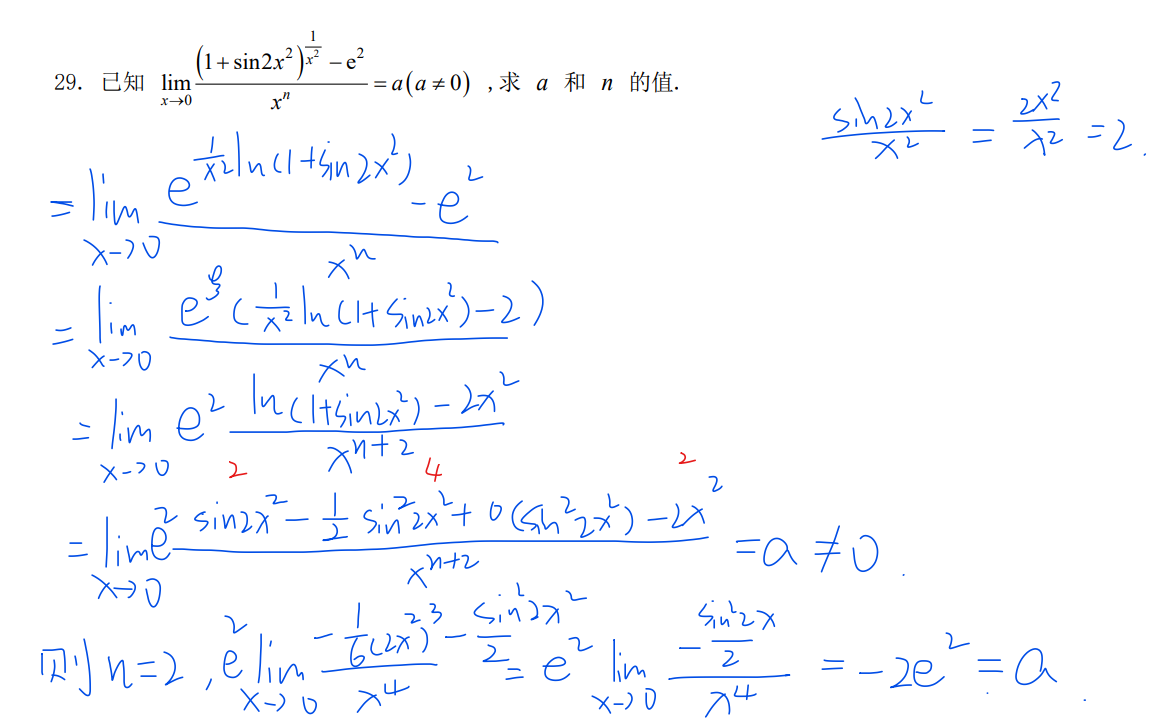 29. 已知 lim_{x→0} ((1+sin2x²)^{1/x²} − e²)/xⁿ = a(a≠0) ,求 a 和 n 的值.
sin2x²/x² = 2x²/x² = 2.
= lim_{x→0} (e^{1/x² ln(1+sin2x²)} − e²)/xⁿ
= lim_{x→0} e^ξ (1/x² ln(1+sin2x²) − 2)/xⁿ
= lim_{x→0} e² (ln(1+sin2x²) − 2x²)/x^{n+2}
2 4 2
= lim_{x→0} e² (sin2x² − 1/2 sin²2x² + o(sin²2x²) − 2x²)/x^{n+2} = a ≠ 0.
则 n=2, e² lim_{x→0} (−1/6(2x²)³ − sin²2x²/2)/x⁴ = e² lim_{x→0} (−sin²2x/2)/x⁴ = −2e² = a.